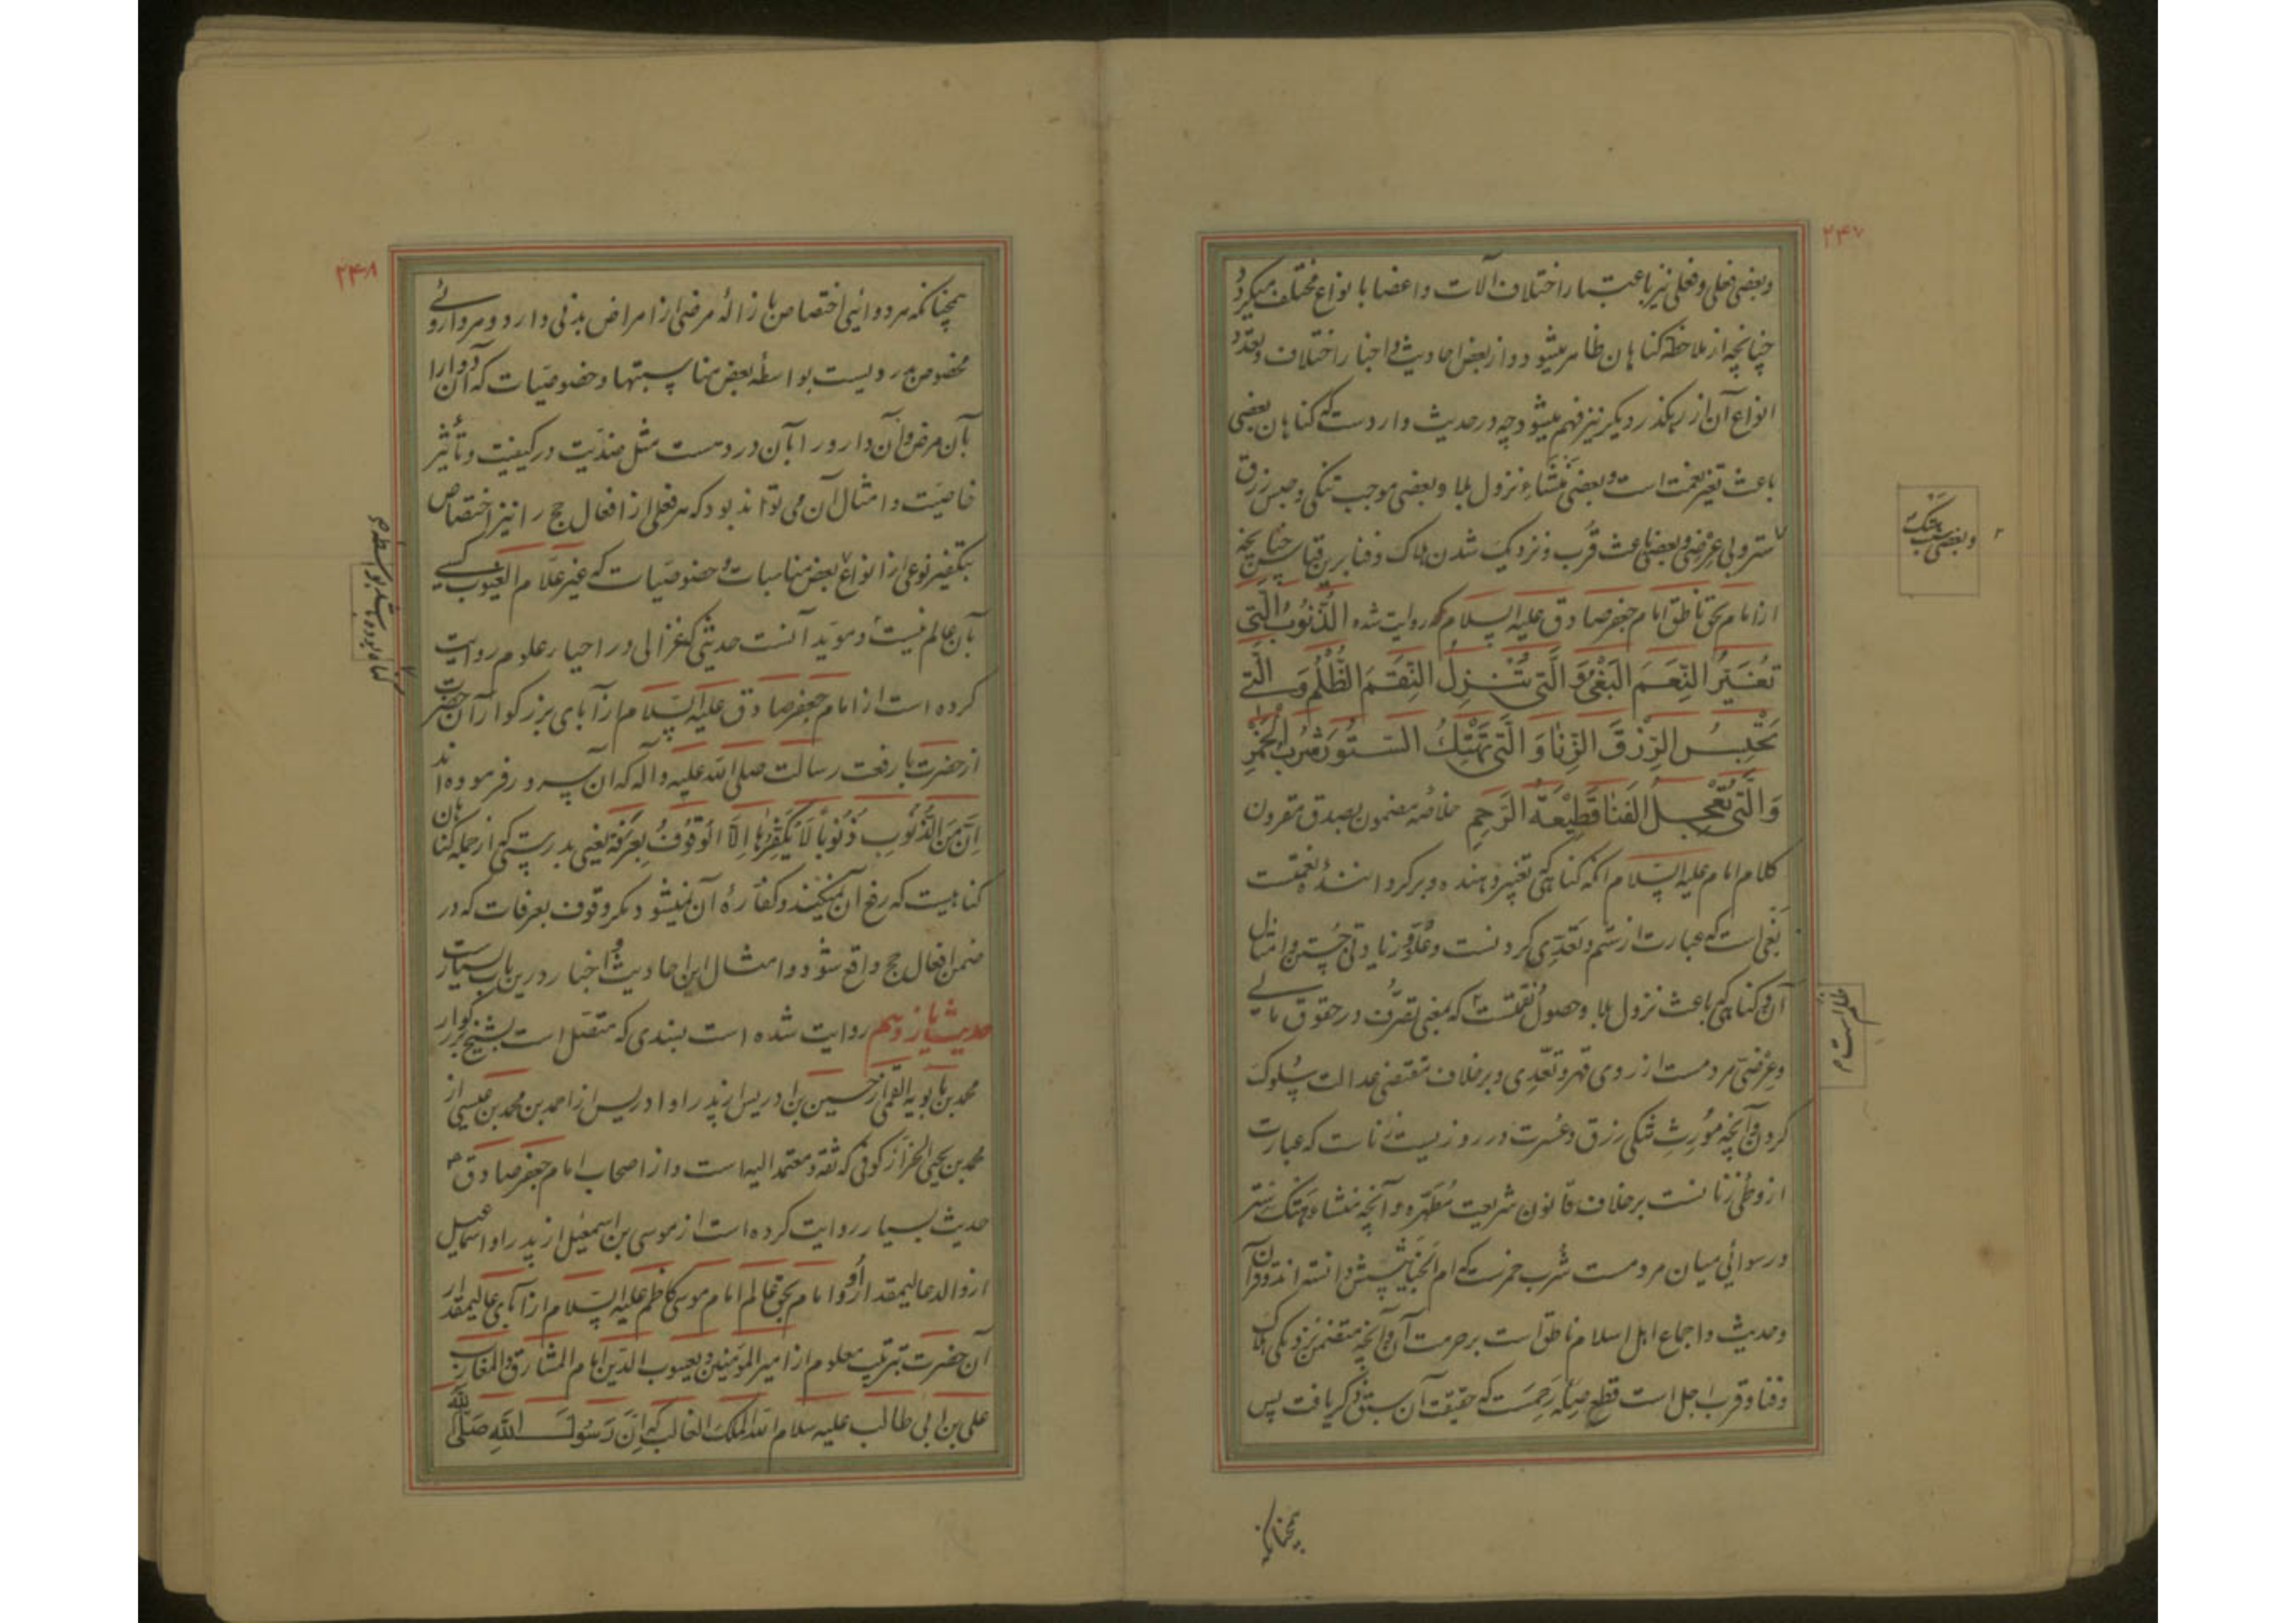 ۲۴۷
و بعضی فعلی و فعلی نیز باعتبار اختلاف آلات و اعضا بانواع مختلف میگردد
چنانچه از ملاحظه کناهان ظاهر میشود و از بعض احادیث و اخبار اختلاف و تعدد
انواع آن از رهکذر دیکر نیز فهم میشود چه در حدیث واردست که کناهان بعضی
باعث تغیر نعمت است و بعضی منشاء نزول بلا و بعضی موجب تنکی و حبس رزق
و بعضی بهتک
ستر و بی عرضی و بعضی باعث قرب و نزدیک شدن هلاک و فنا برین قیاس چنانچه
از امام بحق ناطق امام جعفر صادق علیه السلام که روایت شده الذُّنُوبُ الَّتی
تُغَیِّرُ النِّعَمَ البَغْیُ وَ الَّتی تُنْزِلُ النِّقَمَ الظُّلْمُ وَ الَّتی
تَحْبِسُ الرِّزْقَ الزِّنا وَ الَّتی تَهْتِکُ السُّتُورَ شُرْبُ الْخَمْرِ
وَ الَّتی تُعَجِّلُ الفَنا قَطِیْعَةُ الرَّحِمِ خلاصه مضمون بصدق مقرون
کلام امام علیه السلام آنکه کناهی که تغییر دهنده و برکرداننده نعمتست
بغی است که عبارت از ستم و تعدی کردنست و علو و زیادتی جستن و امثال
آن و کناهی که باعث نزول بلا و حصول نقمتست که بمعنی تصرف در حقوق مالی
ظلم است م
و عرضی مردمست از روی قهر و تعدی و برخلاف مقتضی عدالت سلوک
کردن و آنچه مورث تنکی رزق و عسرت در روزیست زناست که عبارت
از وطی زنانست برخلاف قانون شریعت مطهره و آنچه منشاء هتک ستر
و رسوائی میان مردمست شرب خمرست که ام الخبایثش دانسته اند و قرآن
و حدیث و اجماع اهل اسلام ناطق است بر حرمت آن و آنچه متضمن نزدیکی هلاک
و فنا و قرب اجل است قطع صله رحمست که حقیقت آن سبق ذکر یافت پس
همچنانکه
۲۴۸
همچنانکه هر دوائی اختصاص بازالهٔ مرضی از امراض بدنی دارد و هر داروئی
مخصوص دردیست بواسطه بعض مناسبتها و خصوصیات که آن دوا را
بآن مرض و آن دارو را بآن دردست مثل ضدیت در کیفیت و تأثیر
خاصیت و امثال آن می تواند بود که هر فعلی از افعال حج را نیز اختصاص
بتکفیر نوعی از انواع بعض مناسبات و خصوصیات که غیر علام الغیوب کسی
کناه بوده باشد بواسطه م
بآن عالم نیست و موید آنست حدیثی که غزالی در احیاء علوم روایت
کرده است از امام جعفر صادق علیه السلام از آبای بزرکوار آن حضرت
از حضرت با رفعت رسالت صلی الله علیه و آله که آن سرور فرموده اند
اِنَّ مِنَ الذُّنُوبِ ذُنُوبًا لَا یُکَفِّرُهَا اِلَّا الْوُقُوفُ بِعَرَفَة یعنی بدرستی که از جمله کناهان
کناهیست که رفع آن نمیکند و کفاره آن نمیشود مکر وقوف بعرفات که در
ضمن افعال حج واقع شود و امثال این احادیث و اخبار درین باب بسیارست
حدیث یازدهم روایت شده است بسندی که متصل است بشیخ بزرکوار
محمد بن بابویه القمی از حسین بن ادریس از پدر او ادریس از احمد بن محمد بن عیسی از
محمد بن یحیی الخزاز کوفی که ثقه و معتمد الیه است و از اصحاب امام جعفر صادق
حدیث بسیار روایت کرده است از موسی بن اسمعیل از پدر او اسماعیل
از والد عالیمقدار او امام بحق عالم امام موسی کاظم علیه السلام از آبای عالیمقدار
آن حضرت بترتیب معلوم از امیر المؤمنین و یعسوب الدین امام المشارق و المغارب
علی بن ابی طالب علیه سلام الله الملک الغالب که اِنَّ رَسُولَ اللهِ صَلَّی الله